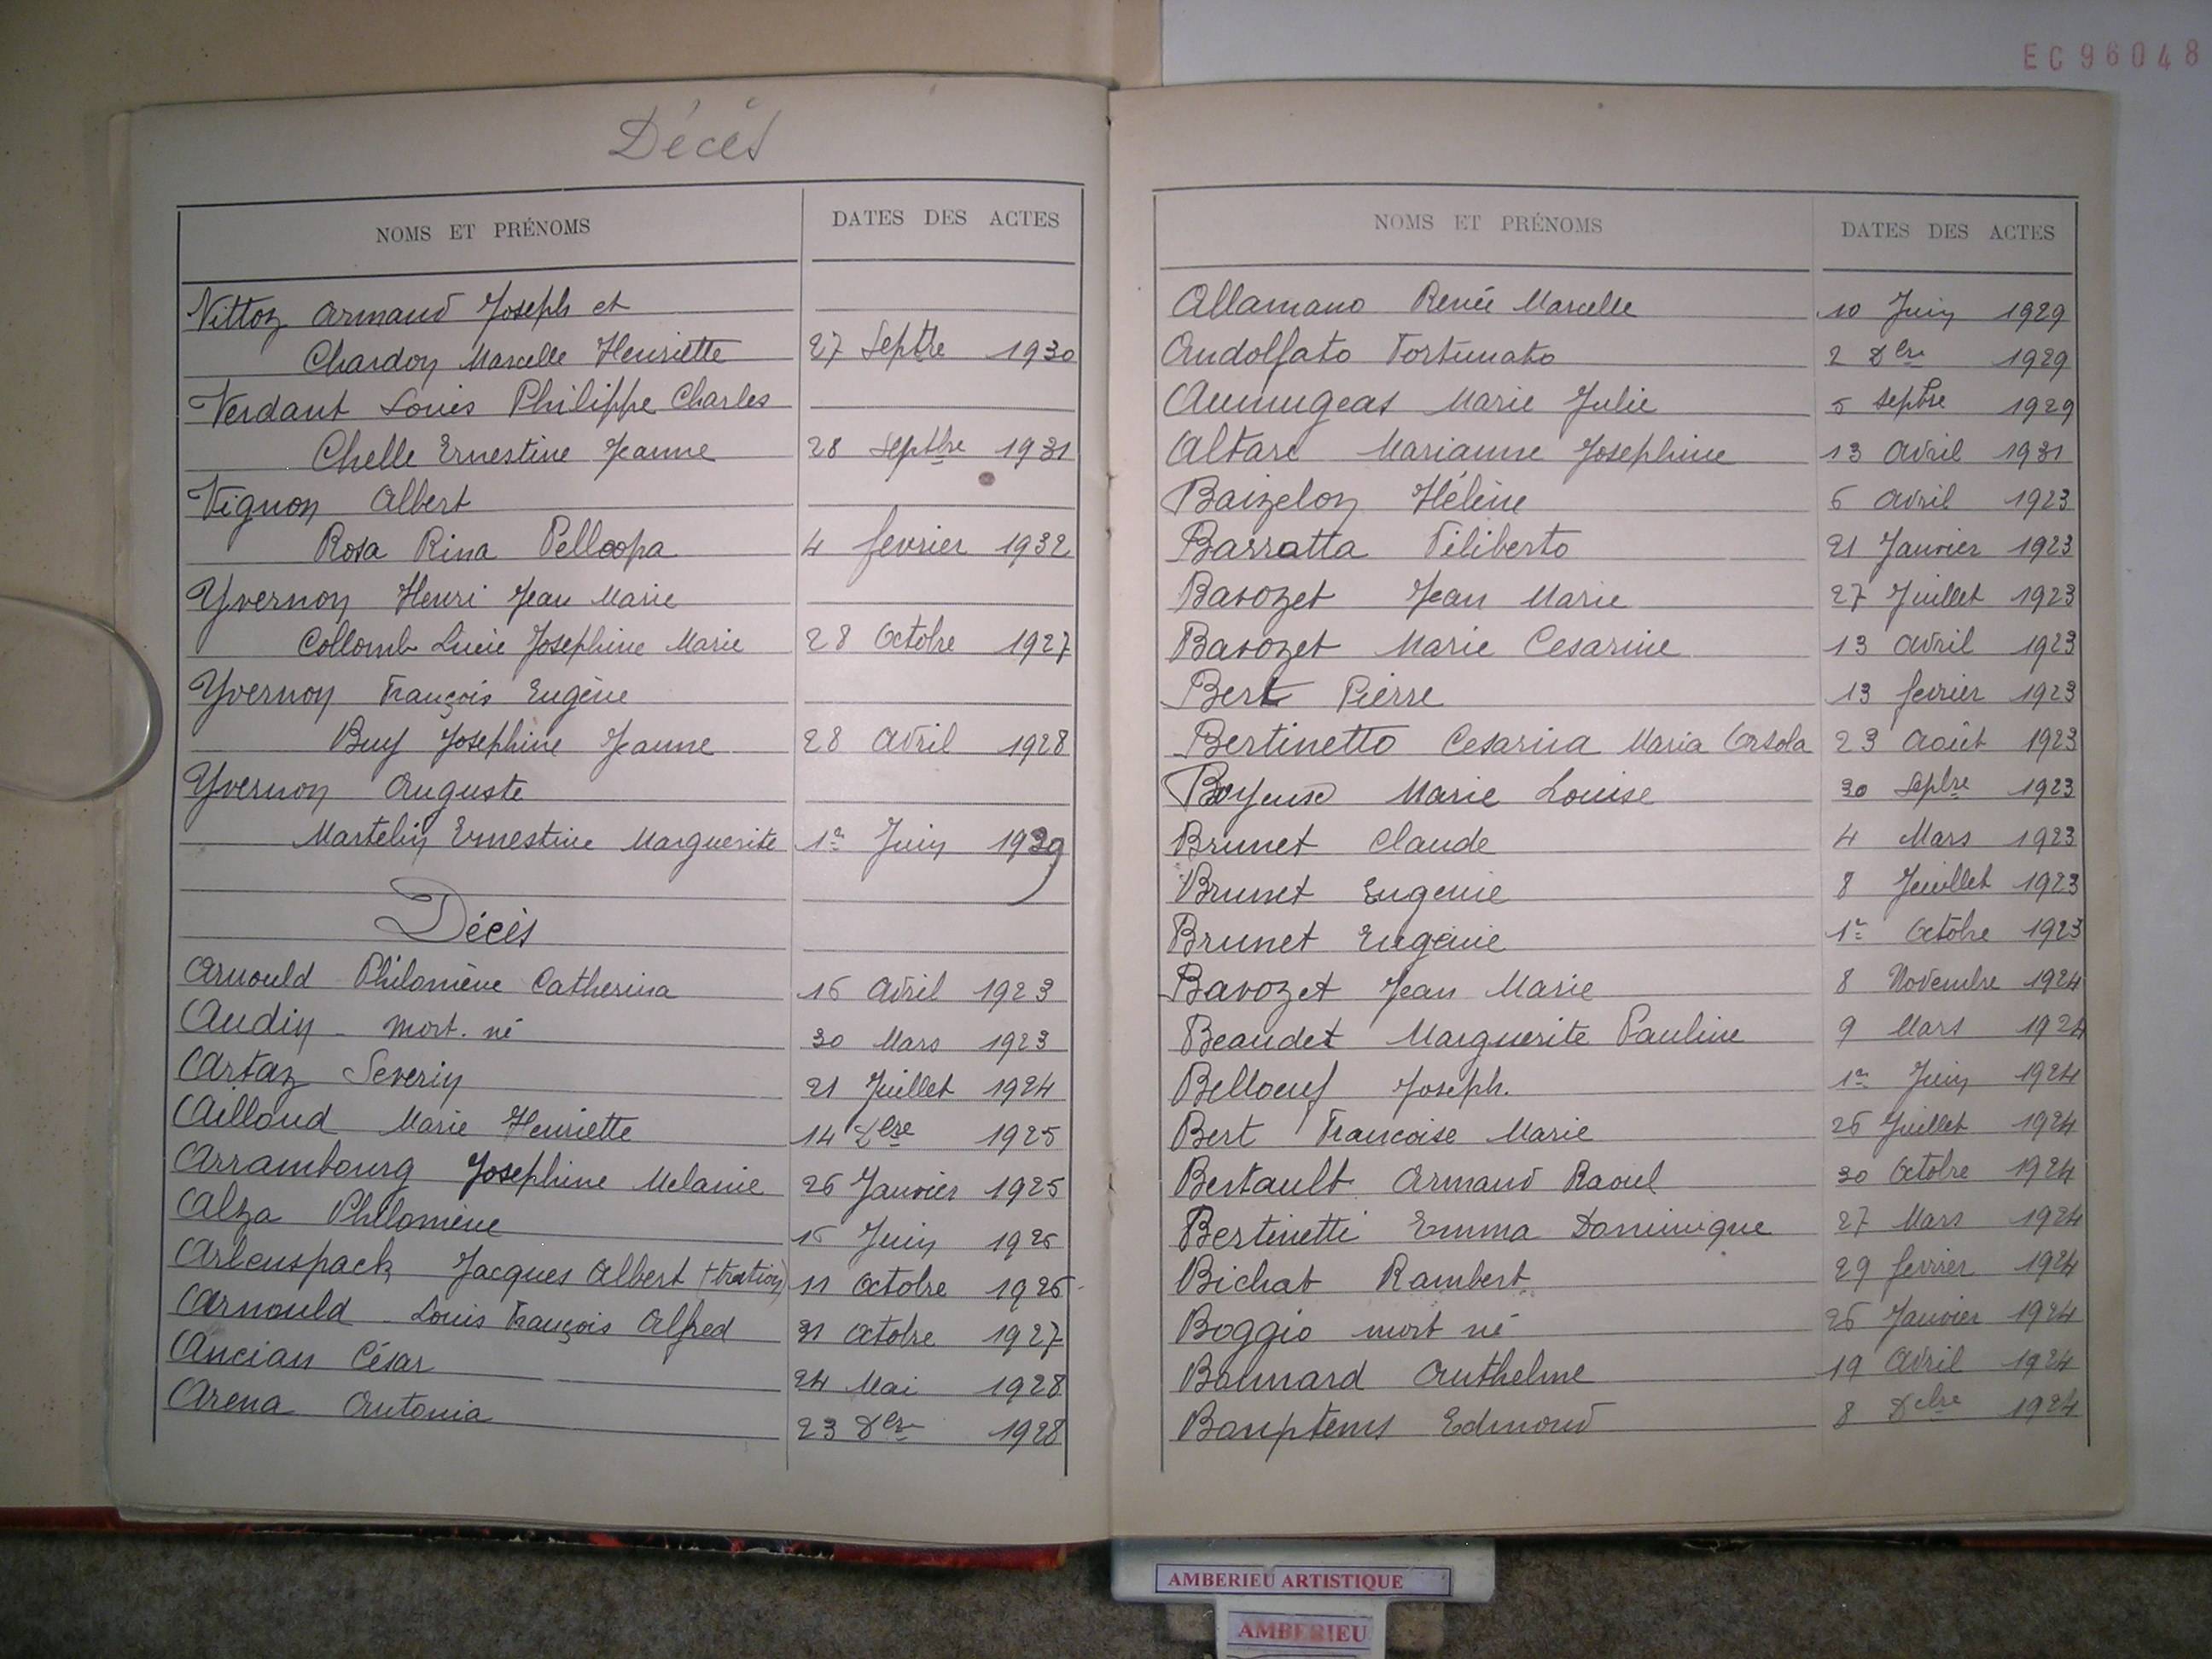 EC96048
Décès
NOMS ET PRÉNOMS DATES DES ACTES
Vittoz Armand Joseph et
Chardon Marcelle Henriette 27 Septbre 1930
Verdant Louis Philippe Charles
Chelle Ernestine Jeanne 28 Septbre 1931
Vignon Albert
Rosa Rina 4 fevrier 1932
Yvernon Henri Jean Marie
Collomb Lucie Josephine Marie 28 Octobre 1927
Yvernon François Eugène
Buy Josephine Jeanne 28 Avril 1928
Yvernon Auguste
Martelin Ernestine Marguerite 1er Juin 1939
Décès
Arnould Philomène Catherina 16 Avril 1923
Audin mort-né 30 Mars 1923
Artaz Severin 21 Juillet 1924
Ailloud Marie Henriette 14 Xbre 1925
Arrambourg Josephine Melanie 26 Janvier 1925
Alza Philomène Juin 1926
Arlenspach Jacques Albert 11 Octobre 1926
Arnould Louis François Alfred 21 Octobre 1927
Ancian César 24 Mai 1928
Arena Antonia 23 Dbre 1928
NOMS ET PRÉNOMS DATES DES ACTES
Allamano Renée Marcelle 10 Juin 1929
Andolfato Fortunato 2 Dbre 1929
Aumugeas Marie Julie 5 Septbre 1929
Altare Marianne Josephine 13 Avril 1931
Baizelon Hélène 6 Avril 1923
Barratta Filiberto 21 Janvier 1923
Bavozet Jean Marie 27 Juillet 1923
Bavozet Marie Cesarine 13 Avril 1923
Bert Pierre 13 fevrier 1923
Bertinetto Cesarina Maria Orsola 23 Août 1923
Boyeuse Marie Louise 30 Sepbre 1923
Brunet Claude 4 Mars 1923
Brunet Eugenie 8 Juillet 1923
Brunet Eugénie 1er Octobre 1923
Bavozet Jean Marie 8 Novembre 1924
Beaudet Marguerite Pauline 9 Mars 1924
Belloeuf Joseph. 1er Juin 1924
Bert Francoise Marie 26 Juillet 1924
Bertault Armand Raoul 30 Octobre 1924
Bertinetti Emma Dominique 27 Mars 1924
Bichat Rambert 29 fevrier 1924
Boggio mort né 26 Janvier 1924
Bonnard Anthelme 19 Avril 1924
Bonptems Edmond 8 Dcbre 1924
AMBERIEU ARTISTIQUE
AMBERIEU